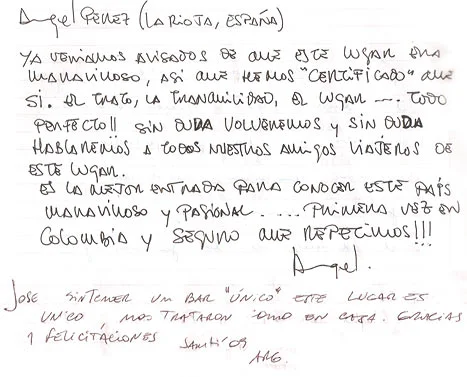 Angel PEREZ (LA RIOJA, ESPAÑA)
YA VENIAMOS AVISADOS DE QUE ESTE LUGAR ERA
MARAVILLOSO, ASI QUE HEMOS "CERTIFICADO" QUE
SI. EL TRATO, LA TRANQUILIDAD, EL LUGAR .... TODO
PERFECTO!! SIN DUDA VOLVEREMOS Y SIN DUDA
HABLAREMOS A TODOS NUESTROS AMIGOS VIAJEROS DE
ESTE LUGAR.
ES LA MEJOR ENTRADA PARA CONOCER ESTE PAÍS
MARAVILLOSO Y PASIONAL .... PRIMERA VEZ EN
COLOMBIA Y SEGURO QUE REPETIMOS!!!
Angel.
JOSE SIN TENER UN BAR "ÚNICO" ESTE LUGAR ES
UNICO NOS TRATARON COMO EN CASA. GRACIAS
Y FELICITACIONES SANTI' 09
ARG.